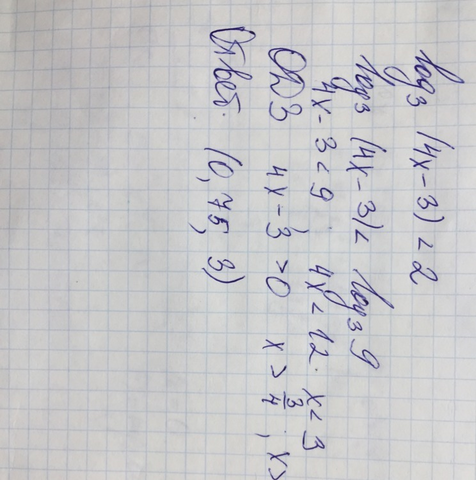 log₃ (4x-3) < 2
log₃ (4x-3) < log₃ 9
4x-3 < 9; 4x < 12. x < 3
ОДЗ 4x-3 > 0 x > 3/4, x >
Ответ. (0,75; 3)